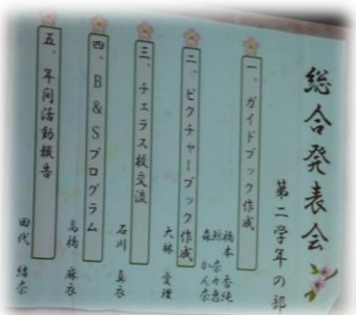 総合発表会
第二学年の部
一、ガイドブック作成
橋本 香純
森 かんな
二、ピクチャーブック作成
大林 愛理
三、チェラス校交流
石川 真衣
四、B&Sプログラム
高橋 麻衣
五、年間活動報告
田代 結奈